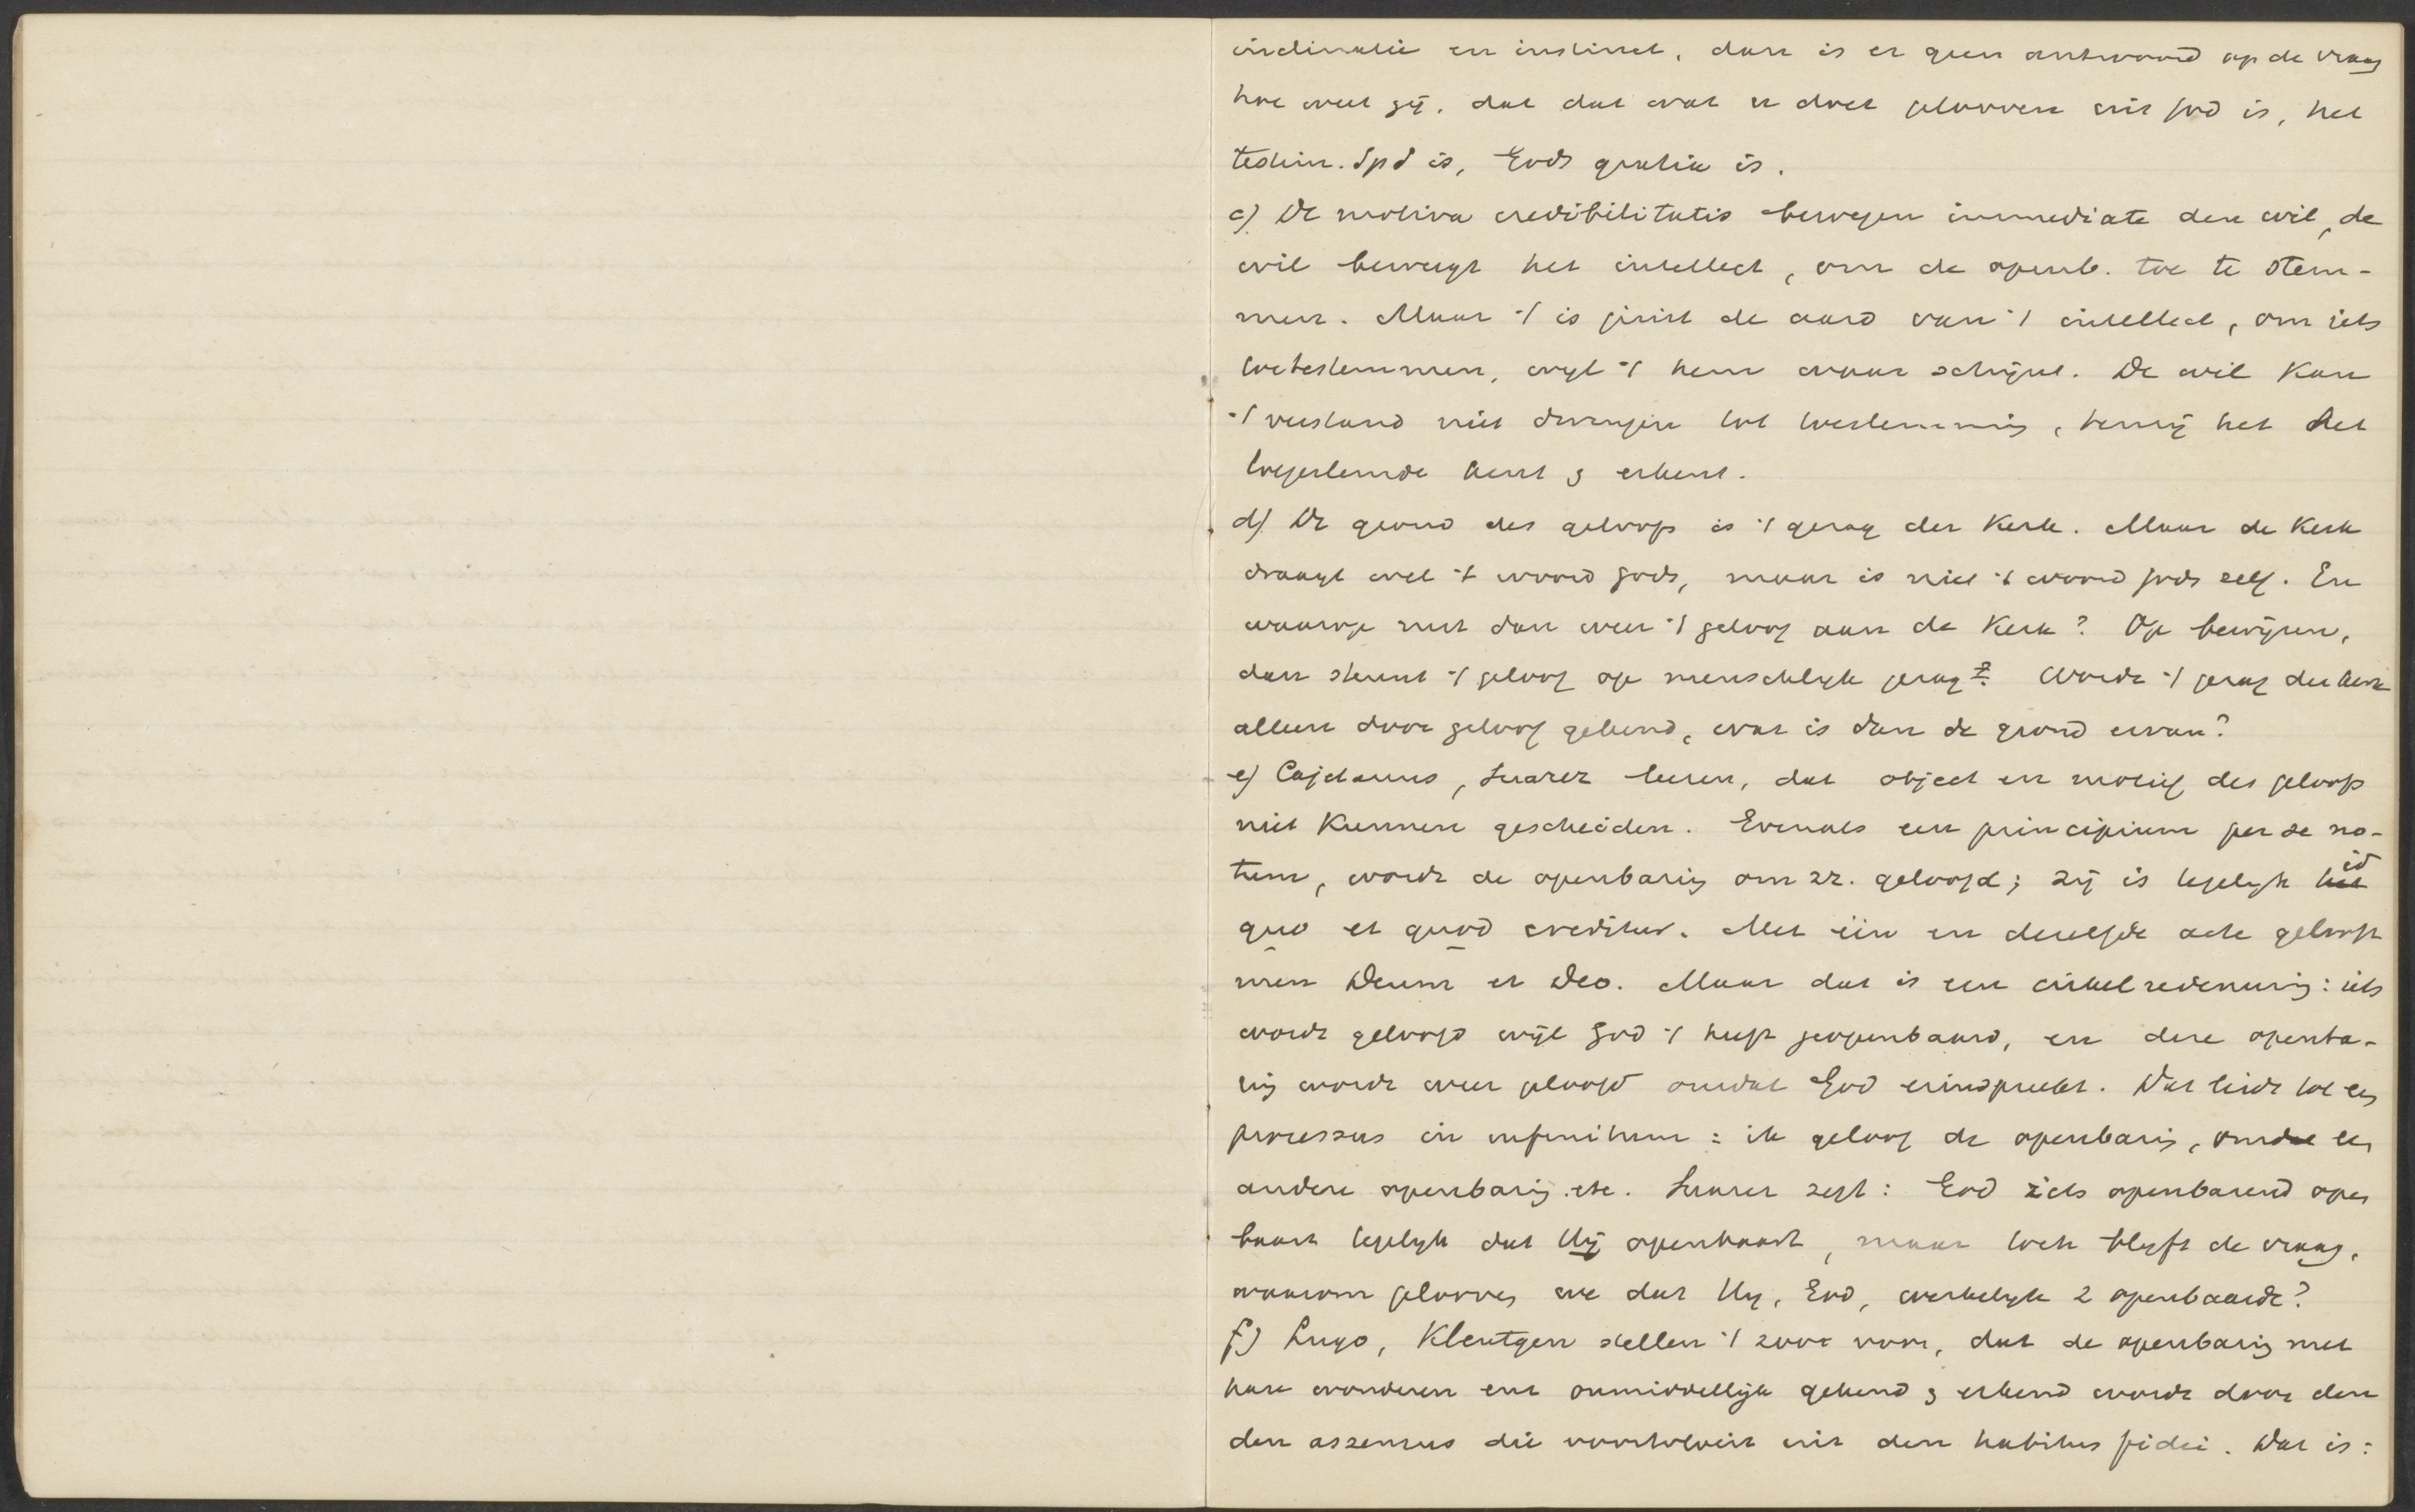 inclinatie en instinct, dan is er geen antwoord op de vraag
hoe weet gij, dat dat wat u doet gelooven uit God is, het
testim. Sp S is, Gods gratie is.
c) De motiva credibilitatis bewegen immediate den wil, de
wil beweegt het intellect, om de openb. toe te stem-
men. Maar 't is juist de aard van 't intellect, om iets
toetestemmen, wijl 't hem waar schijnt. De wil kan
't verstand niet dwingen tot toestemming, tenzij het het
toegestemde kent & erkent.
d) De grond des geloofs is 't gezag der Kerk. Maar de Kerk
draagt wel 't woord Gods, maar is niet 't woord Gods zelf. En
waarop rust dan weer 't geloof aan de Kerk? Op bewijzen,
dan steunt 't geloof op menschelijk gezag? Wordt 't gezag der kerk
alleen door geloof gekend, wat is dan de grond ervan?
e) Cajetanus, Suarez leeren, dat object en motief des geloofs
niet kunnen gescheiden. Evenals een principium per se no-
tum, wordt de openbaring om zz. geloofd; zij is tegelijk id
quo et quod creditur. Met één en dezelfde acte gelooft
men Deum et Deo. Maar dat is een cirkelredeneering: iets
wordt geloofd wijl God 't heeft geopenbaard, en deze openba-
ring wordt weer geloofd omdat God erin spreekt. Dat leidt tot een
processus in infinitum: ik geloof de openbaring, om de een
andere openbaring etc. Suarez zegt: God iets openbarend open
baart tegelijk dat Hij openbaart, maar toch blijft de vraag,
waarom gelooven we dat Hij, God, werkelijk z openbaarde?
f) Lugo, Kleutgen stellen 't zoo voor, dat de openbaring met
hare wonderen enz onmiddellijk gekend & erkend wordt door den
den assensus die voortvloeit uit den habitus fidei. Dat is: